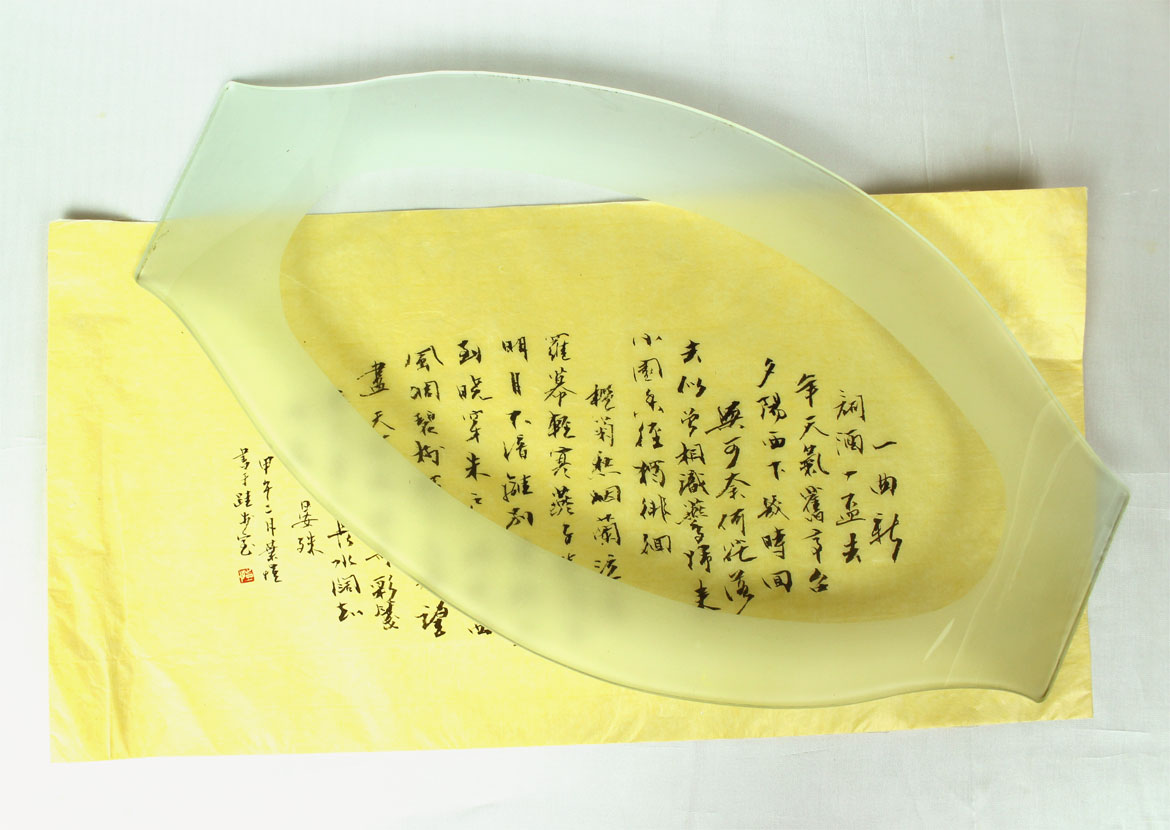 一曲新
詞酒一盃去
年天氣舊亭台
夕陽西下幾時回
無可奈何花落
去似曾相識燕歸來
小園香徑獨徘徊
檻菊愁烟蘭泣
羅幕輕寒燕子
明月不諳離別
到曉穿朱 西
風凋碧樹 望
盡天 彩箋
長水闊知
晏殊
甲午二月葉
書于跬步室